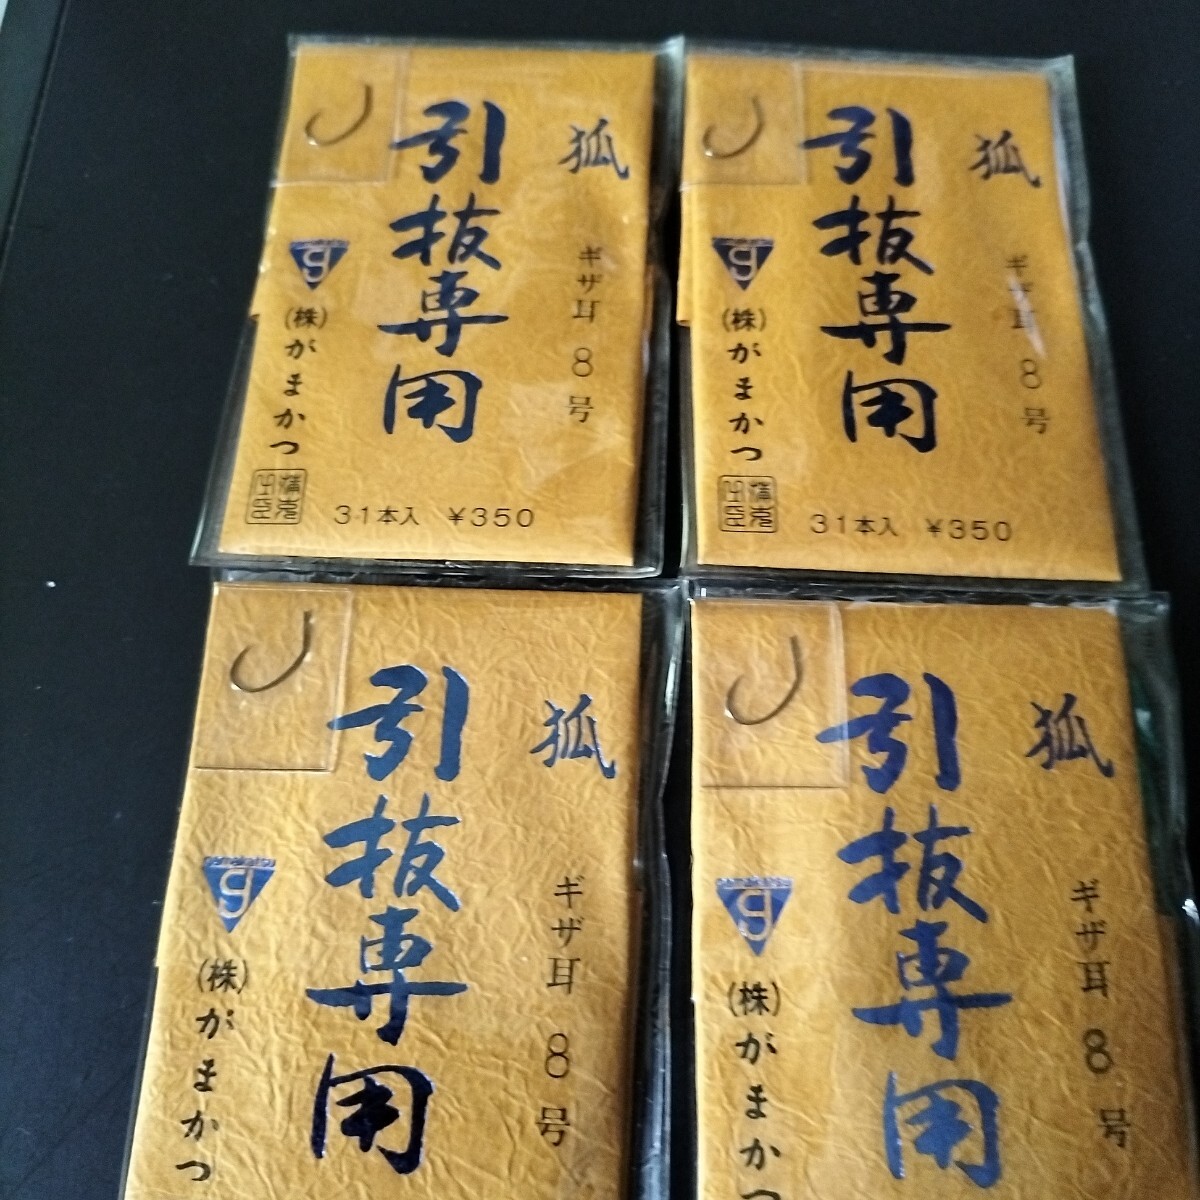 狐
引抜専用
ギザ耳 8号
gamakatsu
(株)がまかつ
31本入 ¥350
狐
引抜専用
ギザ耳 8号
gamakatsu
(株)がまかつ
31本入 ¥350
狐
引抜専用
ギザ耳 8号
gamakatsu
(株)がまかつ
狐
引抜専用
ギザ耳 8号
gamakatsu
(株)がまかつ